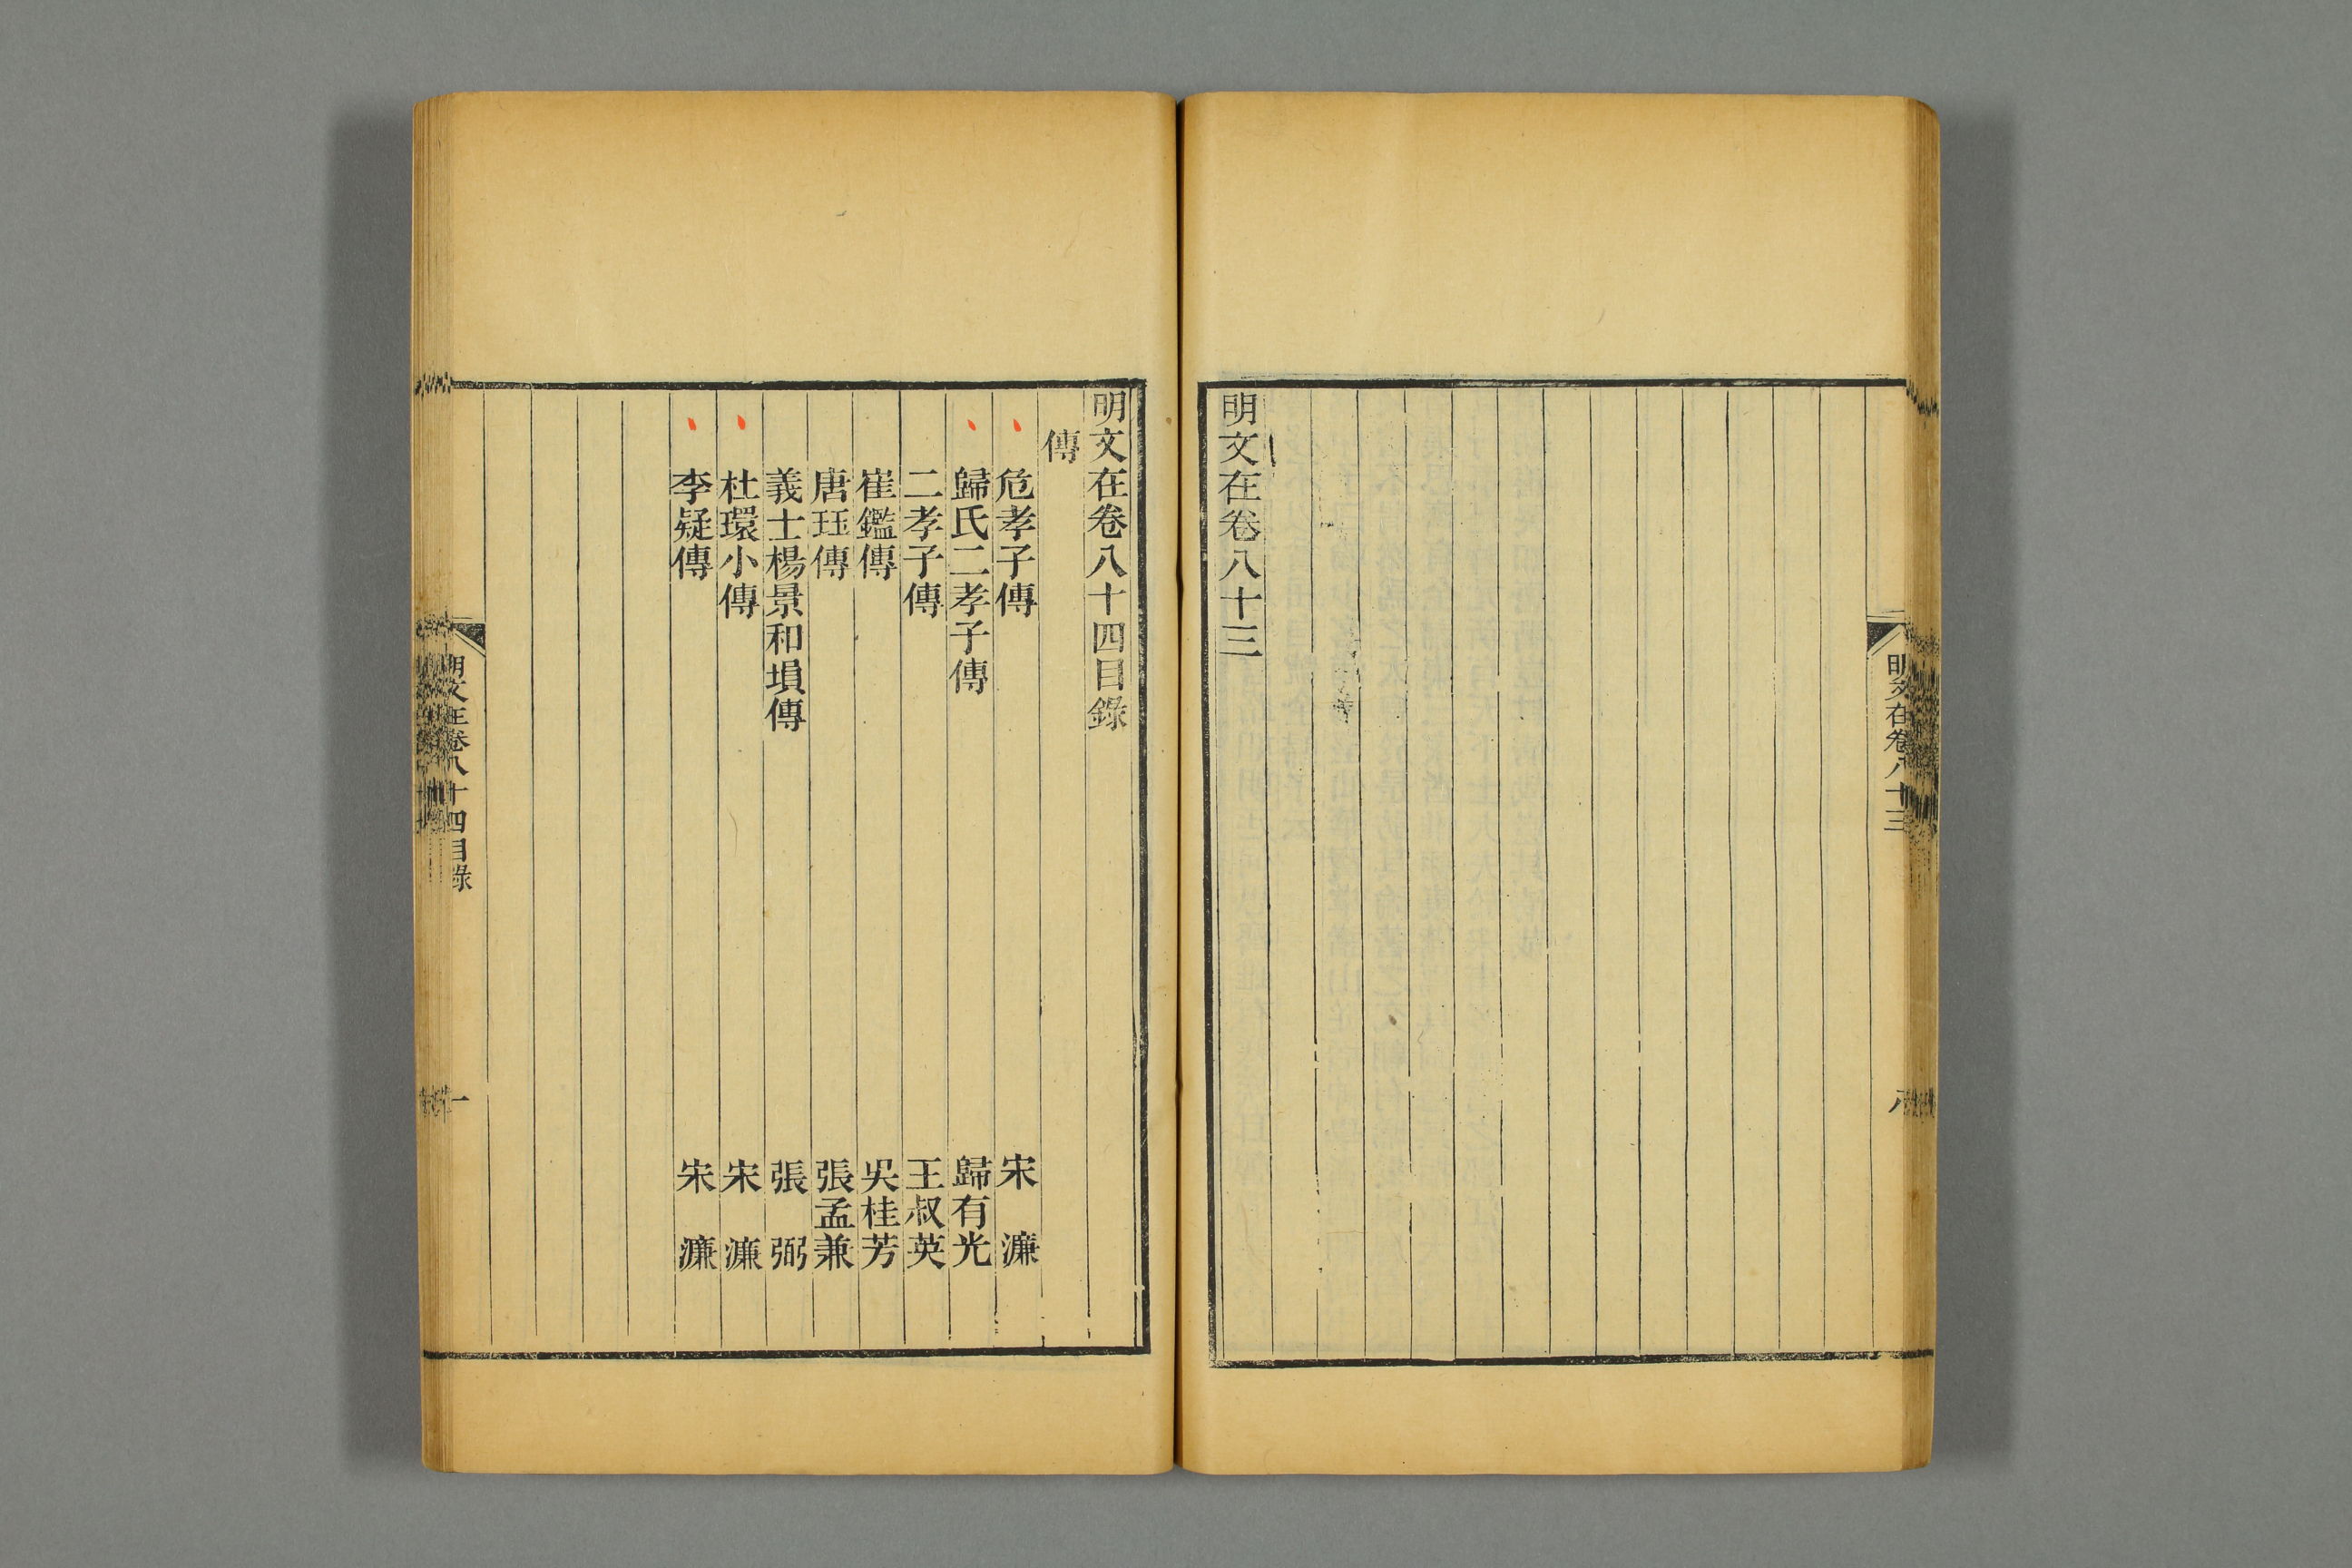 明文在卷八十三
八
明文在卷八十三
明文在卷八十四目錄
傳
危孝子傳 宋濂
歸氏二孝子傳 歸有光
二孝子傳 王叔英
崔鑑傳 吳桂芳
唐珏傳 張孟兼
義士楊景和塤傳 張弼
杜環小傳 宋濂
李疑傳 宋濂
明文在卷八十四目錄
一